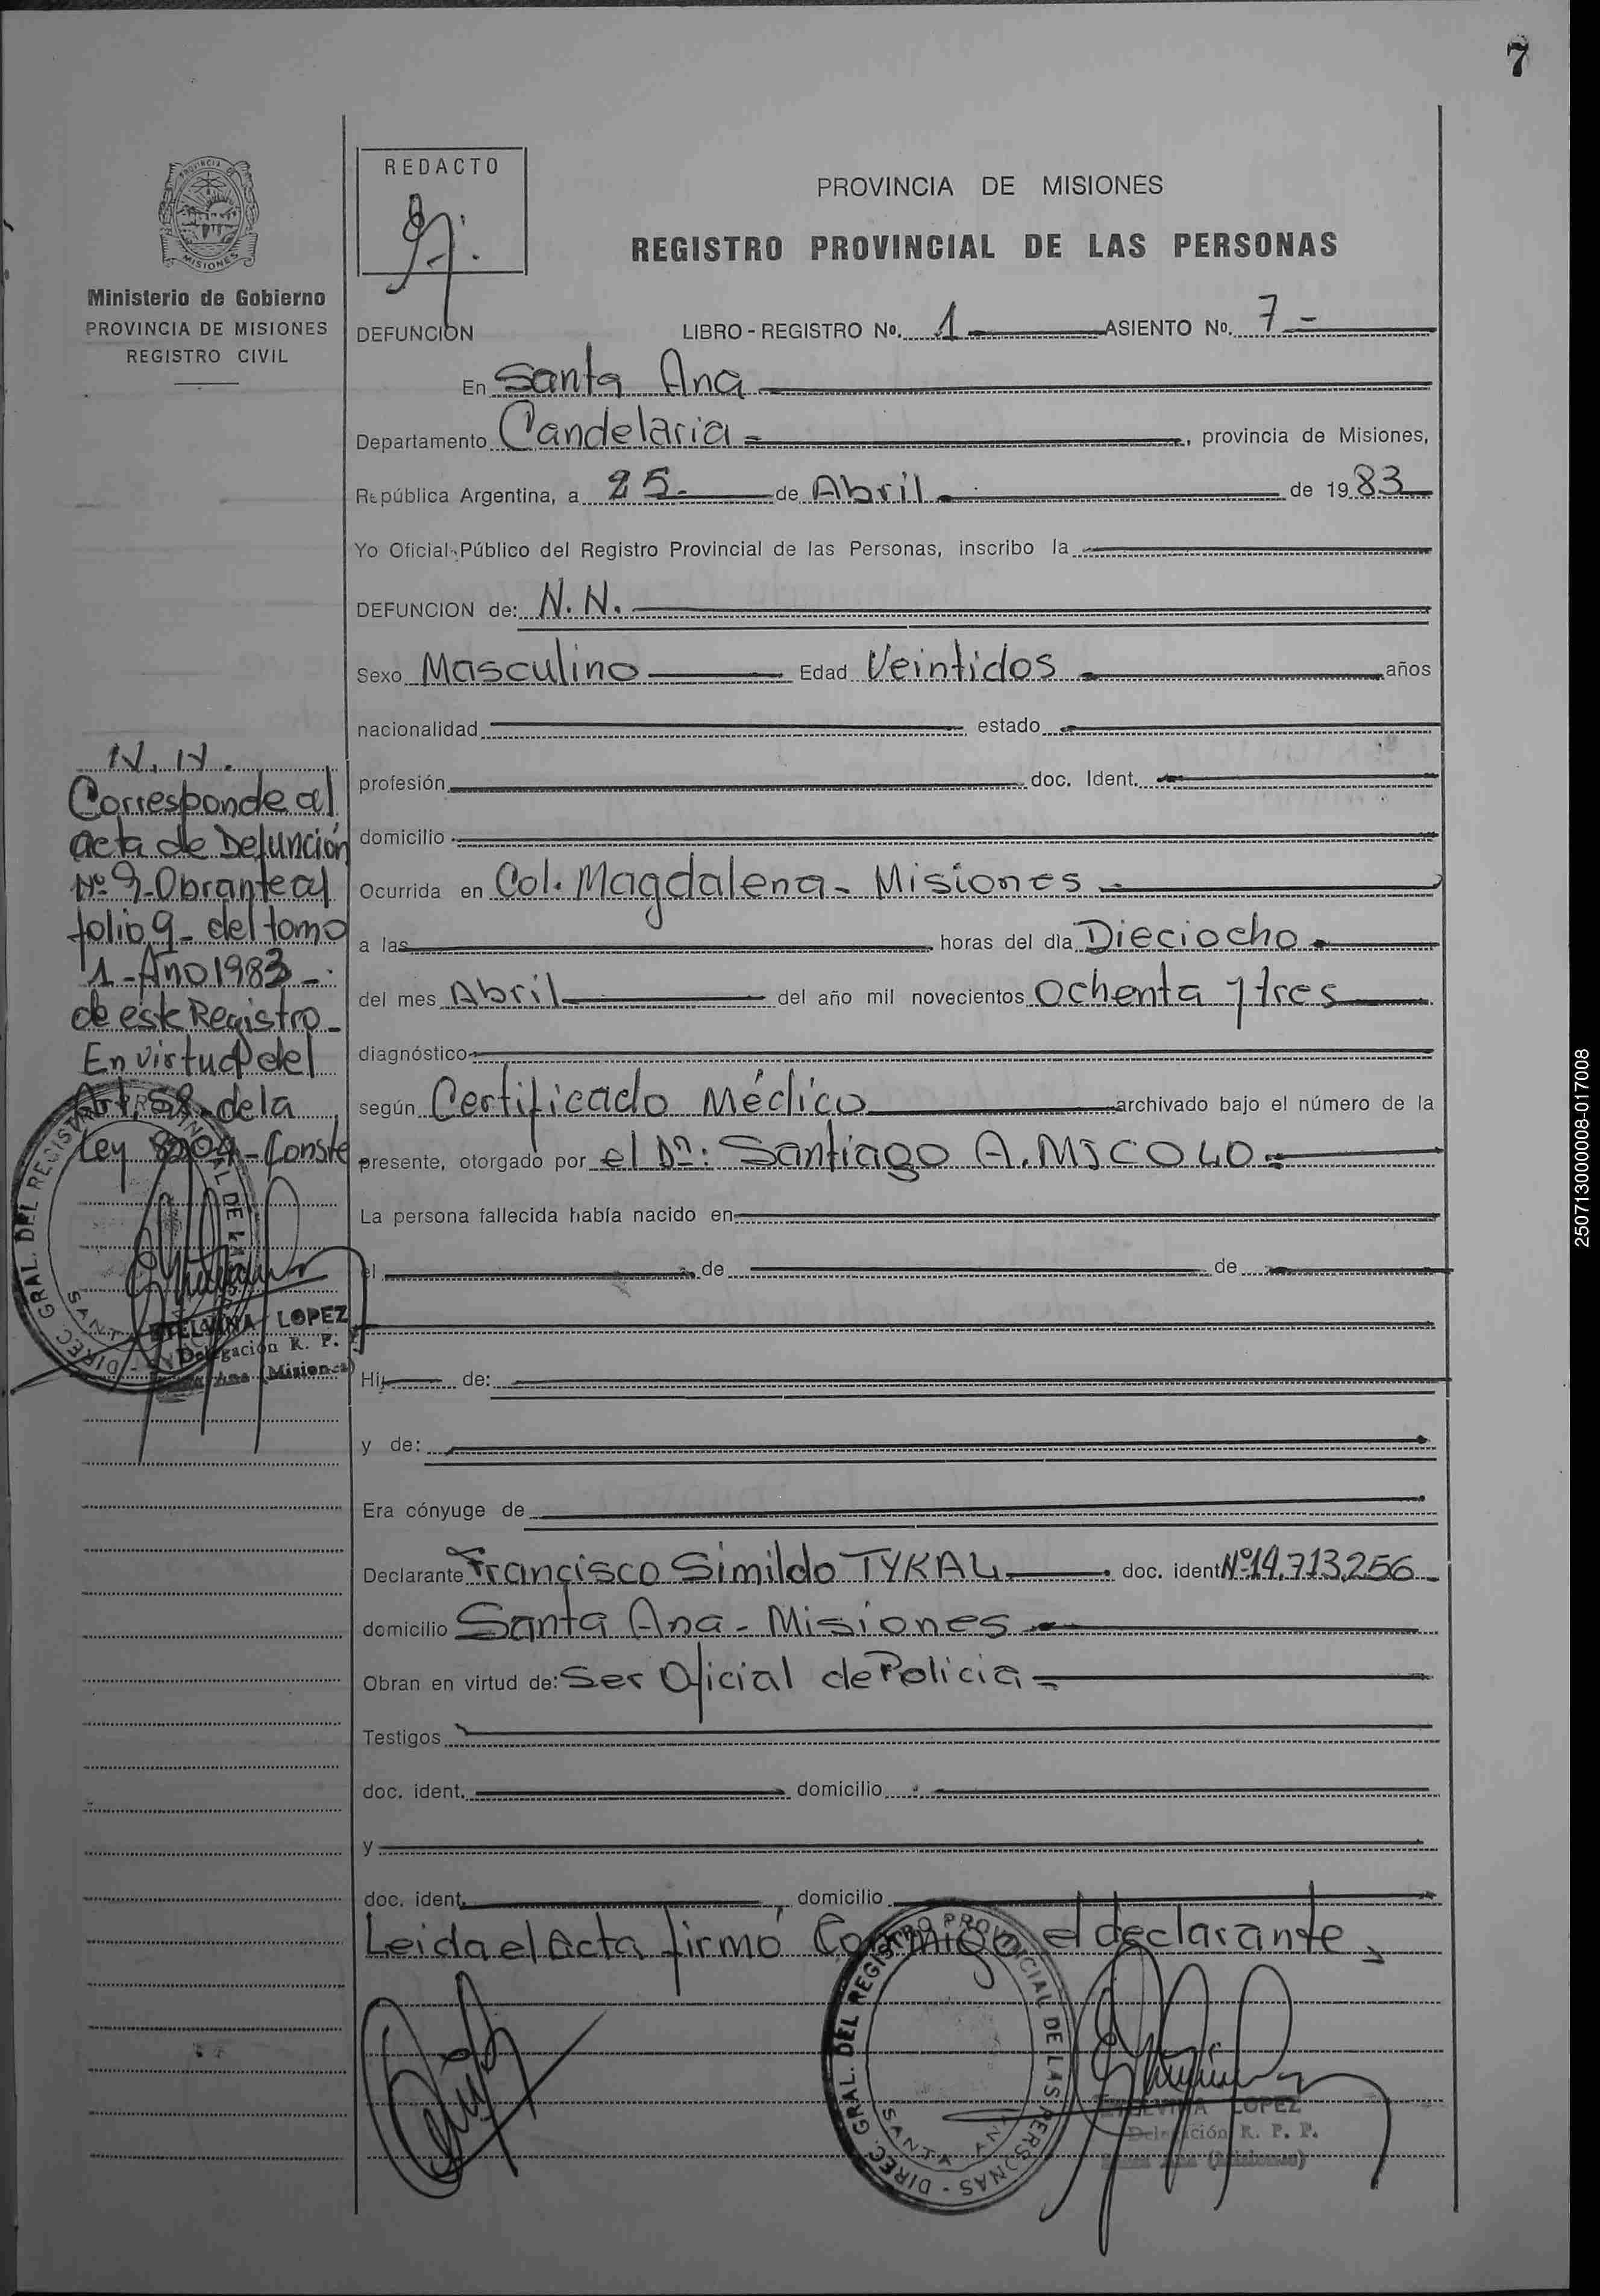 7
PROVINCIA DE
MISIONES
Ministerio de Gobierno
PROVINCIA DE MISIONES
REGISTRO CIVIL
REDACTO
PROVINCIA DE MISIONES
REGISTRO PROVINCIAL DE LAS PERSONAS
DEFUNCIÓN LIBRO - REGISTRO Nº. 1 ASIENTO Nº. 7 -
En Santa Ana
Departamento Candelaria - , provincia de Misiones,
República Argentina, a 25. de Abril de 1983
Yo Oficial Público del Registro Provincial de las Personas, inscribo la
DEFUNCION de: N. N.
Sexo Masculino Edad Veintidos años
nacionalidad estado
profesión doc. Ident.
domicilio
Ocurrida en Col. Magdalena - Misiones -
a las horas del día Dieciocho
del mes Abril del año mil novecientos Ochenta y tres
diagnóstico
según Certificado Médico archivado bajo el número de la
presente, otorgado por el Dr: Santiago A. MICOLO =
La persona fallecida había nacido en
el de de
Hij de:
y de:
Era cónyuge de
Declarante Francisco Simildo TYKAL doc. ident Nº 14.713.256 -
domicilio Santa Ana - Misiones
Obran en virtud de: Ser Oficial de Policia -
Testigos
doc. ident. domicilio
y
doc. ident. , domicilio
Leida el Acta firmó Conmigo el declarante,
DIREC. GRAL. DEL REGISTRO PROVINCIAL DE LAS PERSONAS -
SANTA ANA
ETELVINA LOPEZ
Delegación R. P. P.
Santa Ana (Misiones)
N. N.
Corresponde al
acta de Defunción
Nº 9 - Obrante al
folio 9 - del tomo
1 - Año 1983 -
de este Registro -
En virtud del
Art. 58 - de la
Ley 8204 - Conste
DIREC. GRAL. DEL REGISTRO PROVINCIAL DE LAS
SANTA
ETELVINA LOPEZ
Delegación R. P.
Santa Ana (Misiones)
250713000008-017008